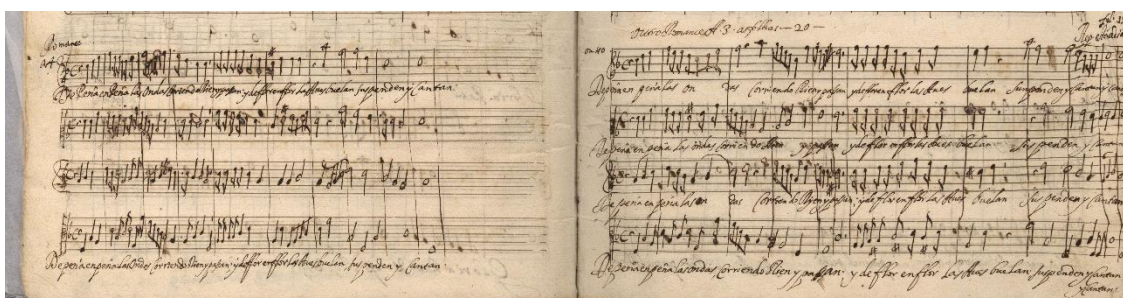 Romance
A 4
De Peña en peña las ondas Corriendo Rien y pasan y de flor en flor las Aues buelan suspenden y Cantan
De peña en peña las Ondas corriendo Rien y pasan y de flor en flor las Aues buelan suspenden y Cantan
Otro Romance A 3
20
De peña en peña las on das Corriendo Rien y pasan y de flor en flor las Aues buelan Suspenden y Cantan
De peña en peña las ondas corriendo Rien y pasan y de flor en flor las Aues buelan Suspenden y
De peña en peña las on das Corriendo Rien y pasan y de flor en flor las Aues buelan Suspenden y Cantan
De peña en peña las ondas, Corriendo Rien y passan. y de flor en flor las Aues buelan. suspenden y Cantan
y Cantan.